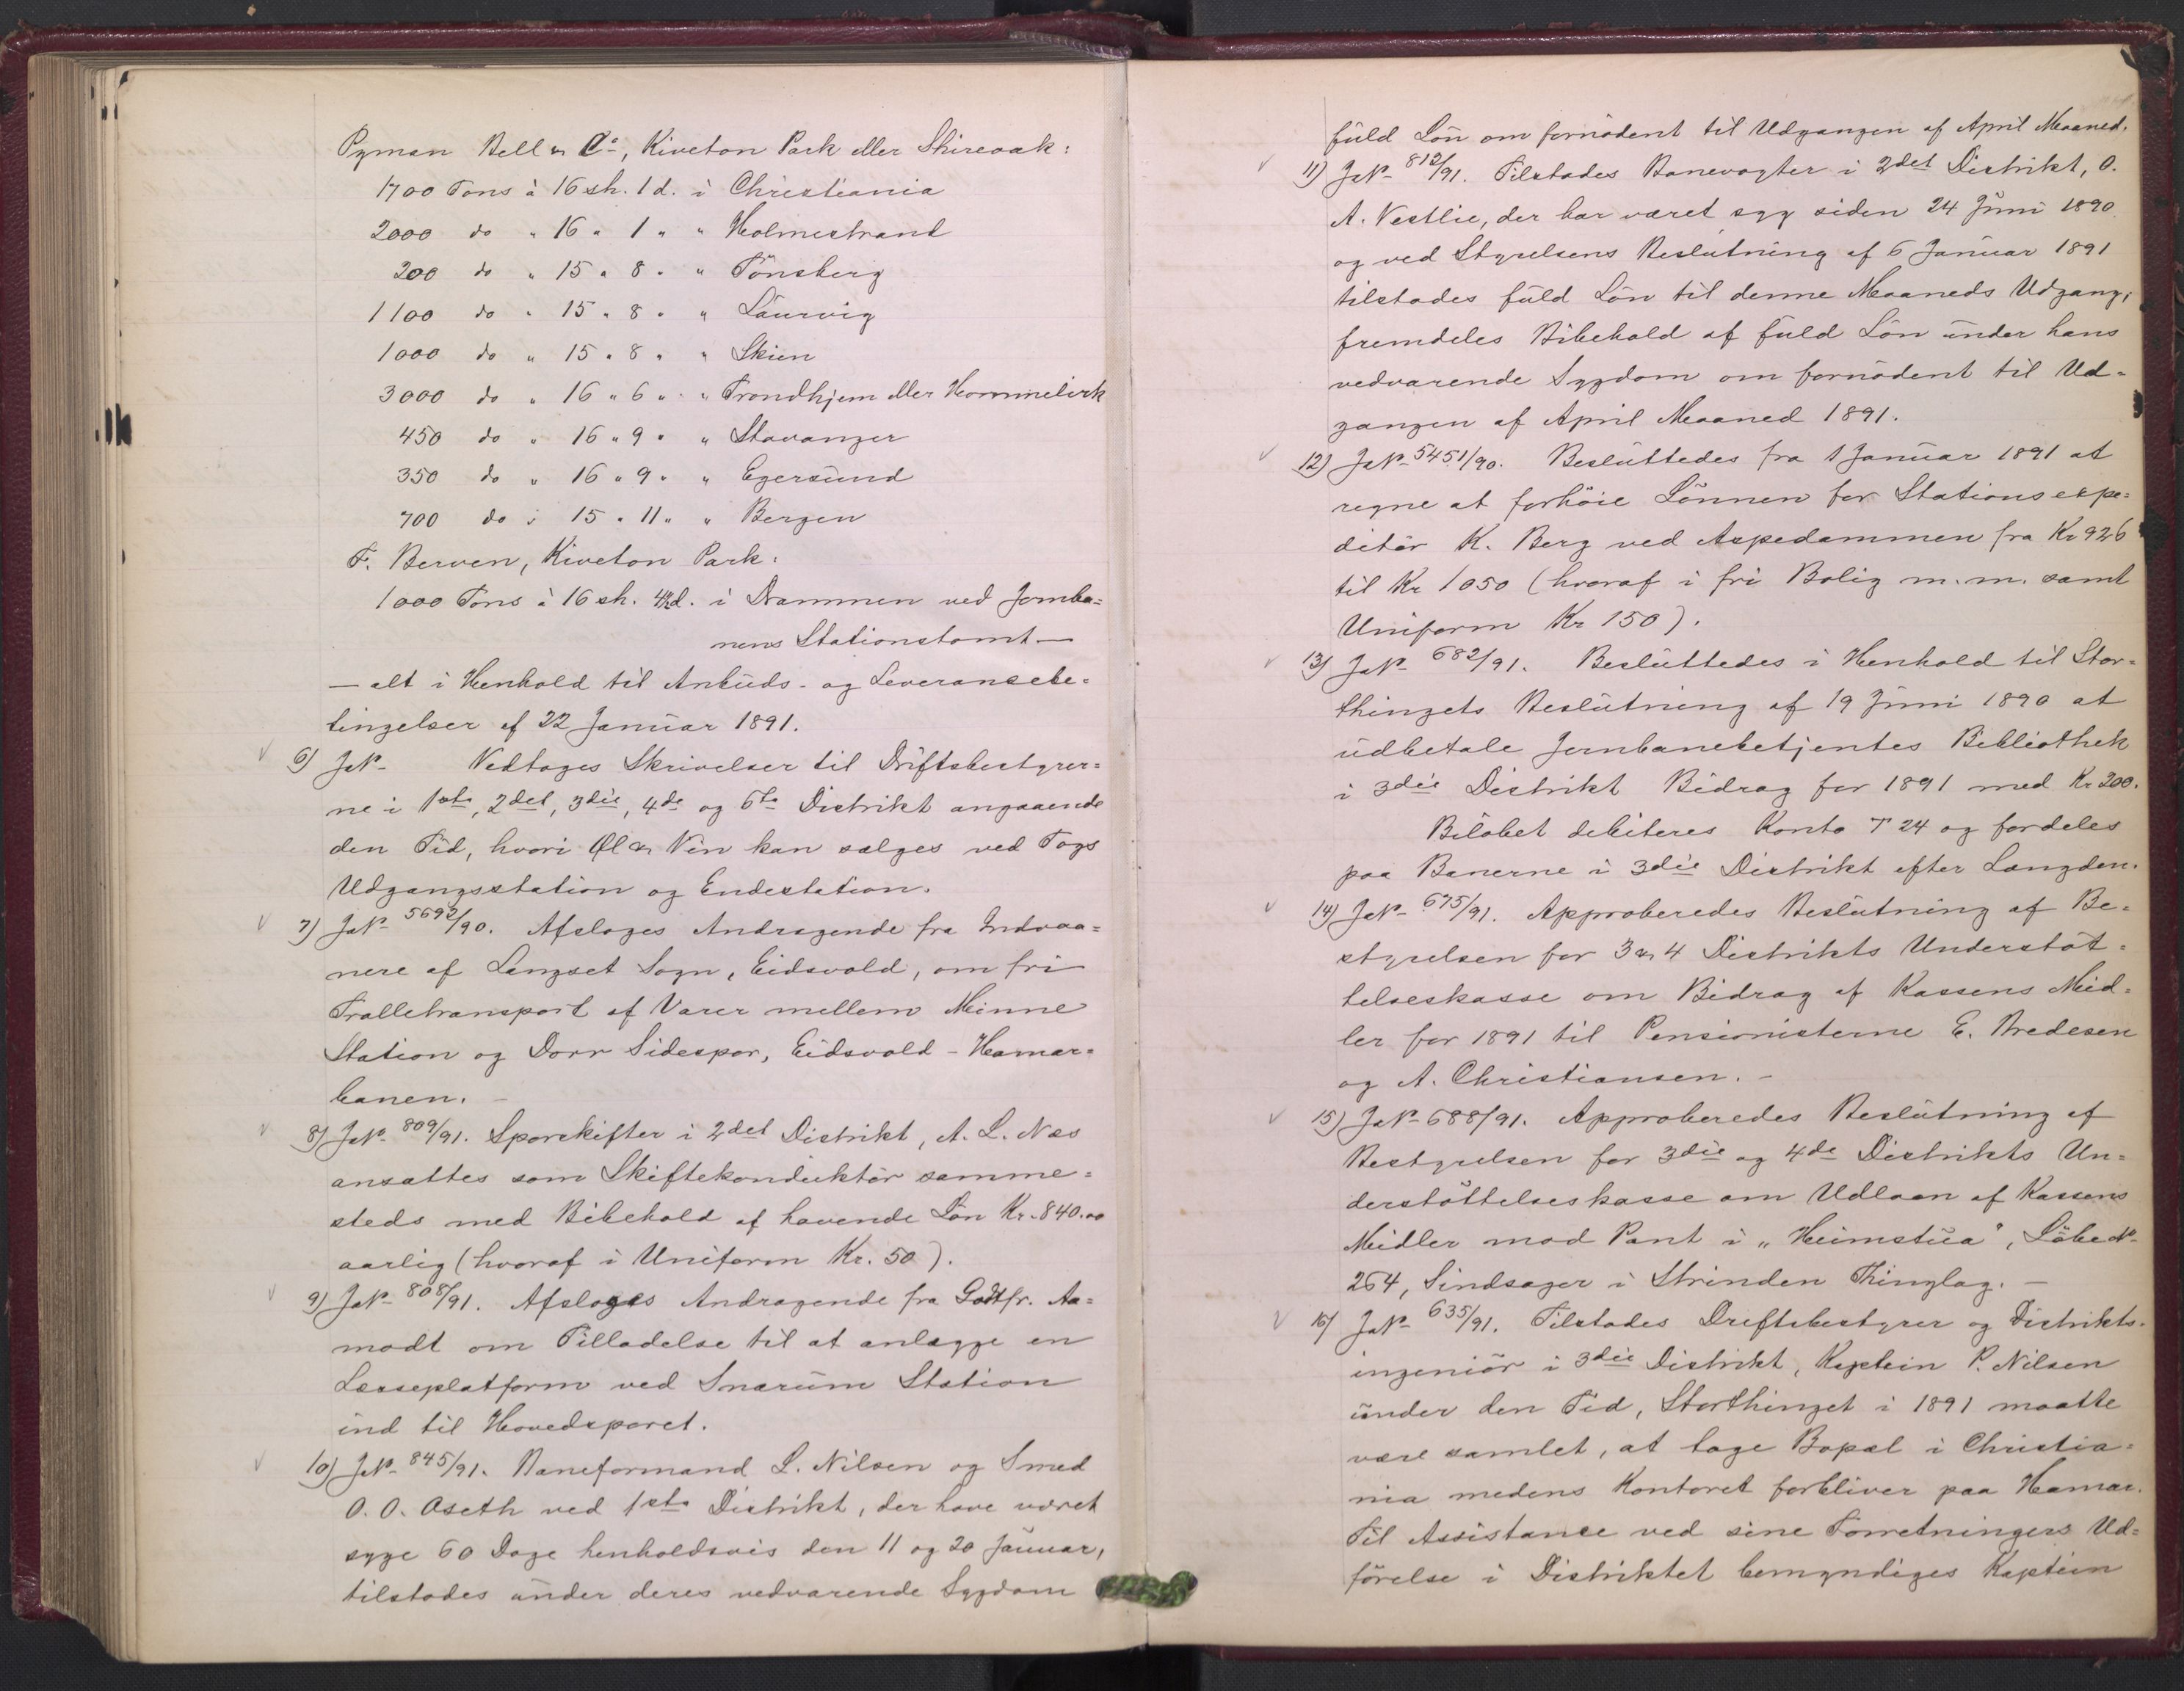 Pyman Bell & Co, Kiveton Park eller Shireoak:
1700 Tons à 16 sh. 1 d. i Christiania
2000 do " 16 " 1 " " Holmestrand
200 do " 15 " 8 " " Tönsberg
1100 do " 15 " 8 " " Laurvig
1000 do " 15 " 8 " " Skien
3000 do " 16 " 6 " " Trondhjem eller Hommelvik
450 do " 16 " 9 " " Stavanger
350 do " 16 " 9 " " Egersund
700 do " 15 " 11 " " Bergen
F. Berven, Kiveton Park:
1000 Tons à 16 sh. 4½d. i Drammen ved Jernba=
nens Stationstomt —
— alt i Henhold til Anbuds- og Leveransebe=
tingelser af 22 Januar 1891.
6) JNo Vedtoges Skrivelser til Driftsbestyrer=
ne i 1ste, 2det, 3die, 4de og 6te Distrikt angaaende
den Tid, hvori Øl & Vin kan sælges ved Togs
Udgangsstation og Endestation.
7) JNo 5692/90. Afsloges Andragende fra Indvaa=
nere af Langset Sogn, Eidsvold, om fri
Tralletransport af Varer mellem Minne
Station og Dorr Sidespor, Eidsvold-Hamar=
banen. —
8) JNo 809/91. Sporskifter i 2det Distrikt, A. L. Næs
ansattes som Skiftekonduktör samme=
steds med Bibehold af havende Lön Kr. 840.00
aarlig (hvoraf i Uniform Kr. 50).
9) JNo 808/91. Afsloges Andragende fra Godtfr. Aa=
modt om Tilladelse til at anlægge en
Læsseplatform ved Snarum Station
ind til Hovedsporet.
10) JNo 845/91. Baneformand L. Nilsen og Smed
O. O. Aseth ved 1ste Distrikt, der have været
syge 60 Dage henholdsvis den 11 og 20 Januar,
tilstodes under deres vedvarende Sygdom
fuld Lön om fornödent til Udgangen af April Maaned.
11) JNo 812/91. Tilstodes Banevogter i 2det Distrikt, O.
A. Vestlie, der har været syg siden 24 Juni 1890
og ved Styrelsens Beslutning af 6 Januar 1891
tilstodes fuld Lön til denne Maaneds Udgang,
fremdeles Bibehold af fuld Lön under hans
vedvarende Sygdom om fornödent til Ud=
gangen af April Maaned 1891.
12) JNo 5451/90. Besluttedes fra 1 Januar 1891 at
regne at forhöie Lönnen for Stationsexpe=
ditör K. Berg ved Aspedammen fra Kr 926
til Kr 1050 (hvoraf i fri Bolig m. m. samt
Uniform Kr 150).
13) JNo 682/91. Besluttedes i Henhold til Stor=
thingets Beslutning af 19 Juni 1890 at
udbetale Jernbanebetjentes Bibliothek
i 3die Distrikt Bidrag for 1891 med Kr 200.
Belöbet debiteres Konto T 24 og fordeles
paa Banerne i 3die Distrikt efter Længden.
14) JNo 675/91. Approberedes Beslutning af Be=
styrelsen for 3 & 4 Distrikts Understöt=
telseskasse om Bidrag af Kassens Mid=
ler for 1891 til Pensionisterne E. Bredesen
og A. Christiansen. —
15) JNo 688/91. Approberedes Beslutning af
Bestyrelsen for 3die og 4de Distrikts Un=
derstöttelseskasse om Udlaan af Kassens
Midler mod Pant i „Heimstua", Löbe No
264, Sindsager i Strinden Thinglag. —
16) JNo 635/91. Tilstodes Driftsbestyrer og Distrikts=
ingeniör i 3die Distrikt, Kaptein P. Nilsen
under den Tid, Storthinget i 1891 maatte
være samlet, at tage Bopæl i Christia=
nia medens Kontoret forbliver paa Hamar.
Til Assistance ved sine Forretningers Ud=
förelse i Distriktet bemyndiges Kaptein